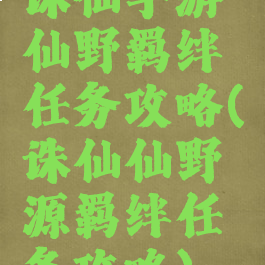 诛仙手游
仙野羁绊
任务攻略(
诛仙仙野
源羁绊任
务攻略)